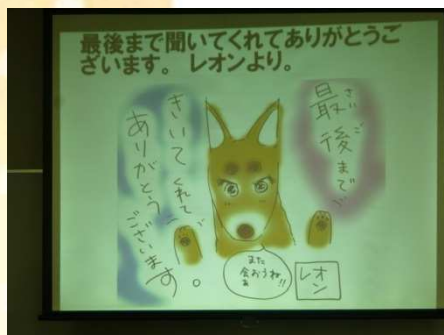 最後まで聞いてくれてありがとうご
ざいます。 レオンより。
最後まで
さいご
きいてくれて
ありがとう
ございます。
また
会おうね
!!
レオン